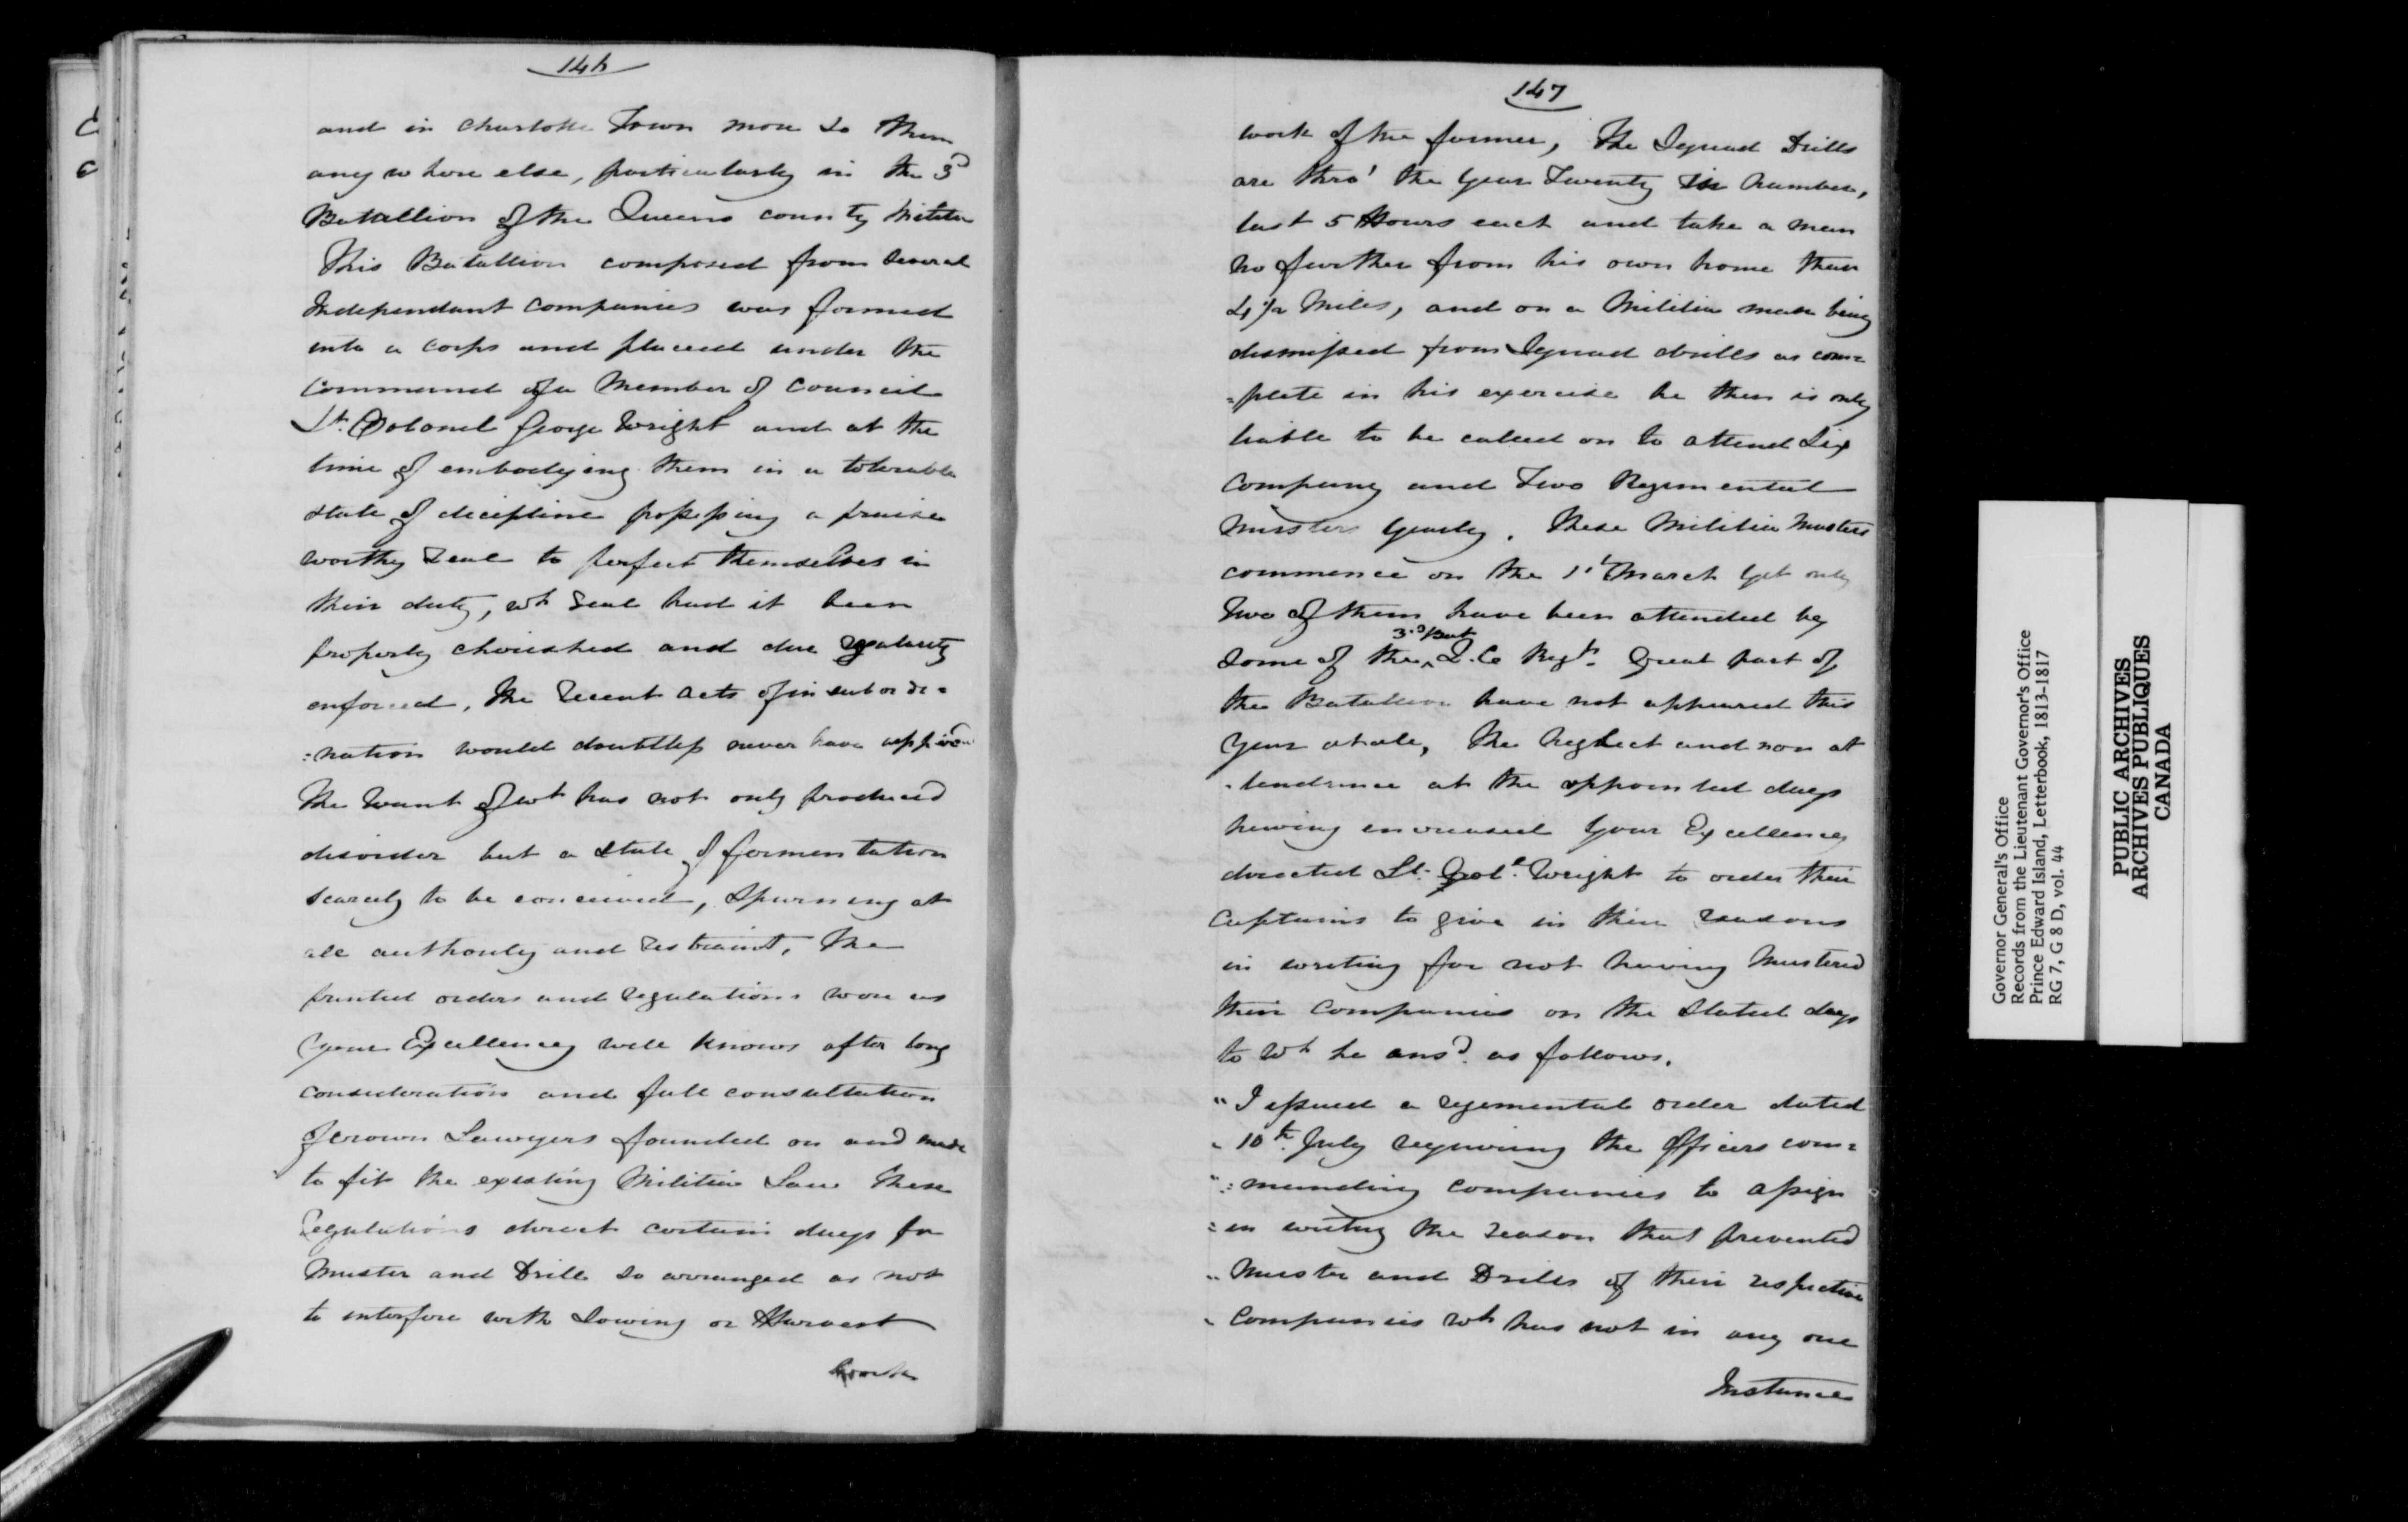 146
and in Charlotte Town more so than
any where else, particularly in the 3d
Battallion of the Queens county Militia
This Batallion composed from several
Independant companies was formed
into a corps and placed under the
command of a Member of Council
Lt. Colonel George Wright and at the
time of embodying them in a tolerable
state of dicipline possessing a praise
worthy zeal to perfect themselves in
their duty, wh zeal had it been
properly cherished and due regularity
enforced, the recent acts of insubordi=
=nation would doubtless never have
The want of wh has not only produced
disorder but a state of formentation
scarcely to be conceived, spurning at
all authority and restraint, The
printed orders and regulations were as
your Excellency well knows after long
consideration and full consultation
of crown Lawyers founded on and made
to fit the existing Militia Law these
regulations direct certain days for
Muster and Drill so arranged as not
to interfere with Sowing or Harvest
147
work of the former, The Squad Drills
are thro' the year Twenty in number,
last 5 Hours each and take a man
no further from his own home than
4 1/2 Miles, and on a Militia man being
dismissed from Squad drills as com=
=plete in his exercise he then is only
liable to be called on to attend Six
Company and Two Regimental
Musters yearly. These Militia Musters
commence on the 1st March yet only
Two of them have been attended by
3.d Bat
some of the ^ Q. Co Regt. Great part of
the Batallion have not appeared this
year at all, The neglect and non at
-tendance at the appointed days
having encreased Your Excellency
directed Lt. Col. Wright to order their
Captains to give in their reasons
in writing for not having Mustered
their Companies on the stated days
to wh he ansd. as follows.
"I issued a regimental order dated
" 10th July requiring the Officers com=
":manding companies to assign
" in writing the reason that prevented
" Muster and Drills of their respective
" Companies wh has not in any one
Instance
Governor General's Office
Records from the Lieutenant Governor's Office
Prince Edward Island, Letterbook, 1813-1817
RG 7, G 8 D, vol. 44
PUBLIC ARCHIVES
ARCHIVES PUBLIQUES
CANADA